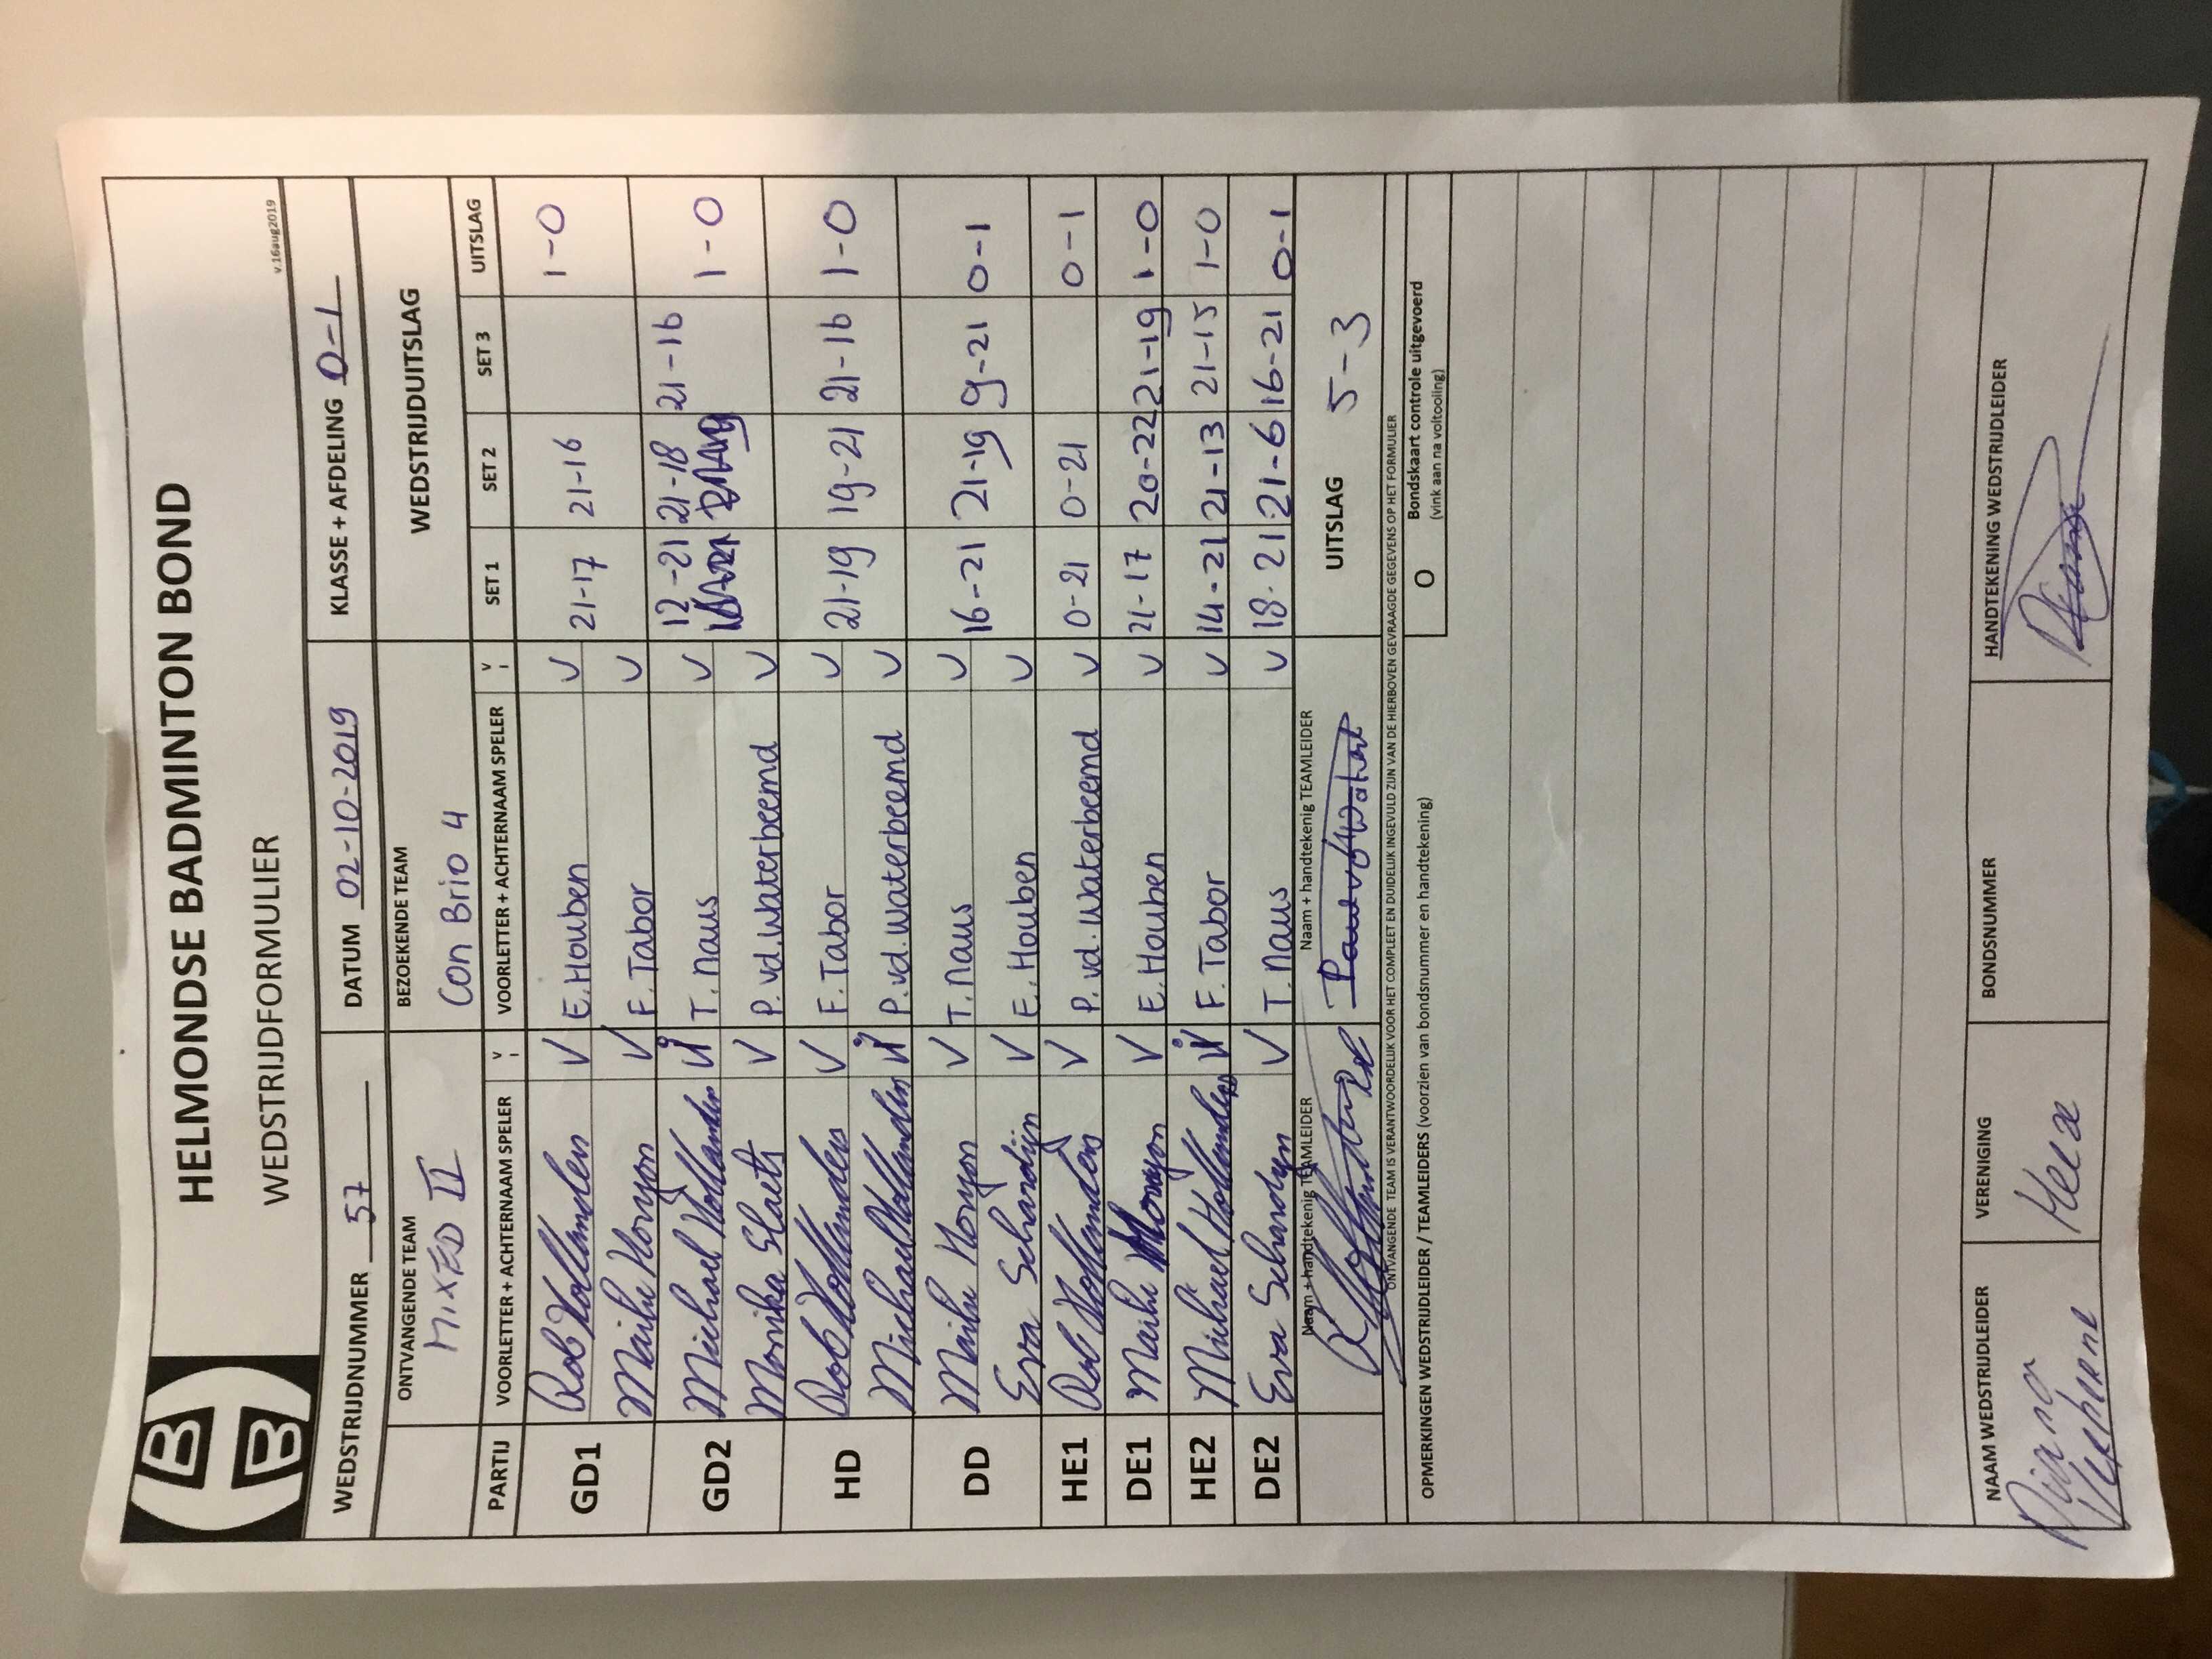 HELMONDSE BADMINTON BOND
WEDSTRIJDFORMULIER
v.16aug2019
WEDSTRIJDNUMMER 57 DATUM 02-10-2019 KLASSE + AFDELING 0-1
ONTVANGENDE TEAM BEZOEKENDE TEAM WEDSTRIJDUITSLAG
MIXED II Con Brio 4
PARTIJ VOORLETTER + ACHTERNAAM SPELER V VOORLETTER + ACHTERNAAM SPELER V SET 1 SET 2 SET 3 UITSLAG
GD1 Rob Hollanders V E. Houben V 21-17 21-16 1-0
V F. Tabor V
GD2 Michael Hollanders V T. Naus V 12-21 21-18 21-16 1-0
Monika Slaets V P. vd. Waterbeemd V
HD Rob Hollanders V F. Tabor V 21-19 19-21 21-16 1-0
Michael Hollanders V P. vd. Waterbeemd V
DD V T. Naus V 16-21 21-19 9-21 0-1
Eva Schardijn V E. Houben V
HE1 Rob Hollanders V P. vd. Waterbeemd V 0-21 0-21 0-1
DE1 V E. Houben V 21-17 20-22 21-19 1-0
HE2 Michael Hollanders V F. Tabor V 14-21 21-13 21-15 1-0
DE2 Eva Schardijn V T. Naus V 18-21 21-6 16-21 0-1
Naam + handtekenig TEAMLEIDER Naam + handtekenig TEAMLEIDER UITSLAG 5-3
ONTVANGENDE TEAM IS VERANTWOORDELIJK VOOR HET COMPLEET EN DUIDELIJK INGEVULD ZIJN VAN DE HIERBOVEN GEVRAAGDE GEGEVENS OP HET FORMULIER
OPMERKINGEN WEDSTRIJDLEIDER / TEAMLEIDERS (voorzien van bondsnummer en handtekening) O Bondskaart controle uitgevoerd
(vink aan na voltooiling)
NAAM WEDSTRIJDLEIDER VERENIGING BONDSNUMMER HANDTEKENING WEDSTRIJDLEIDER
Diana